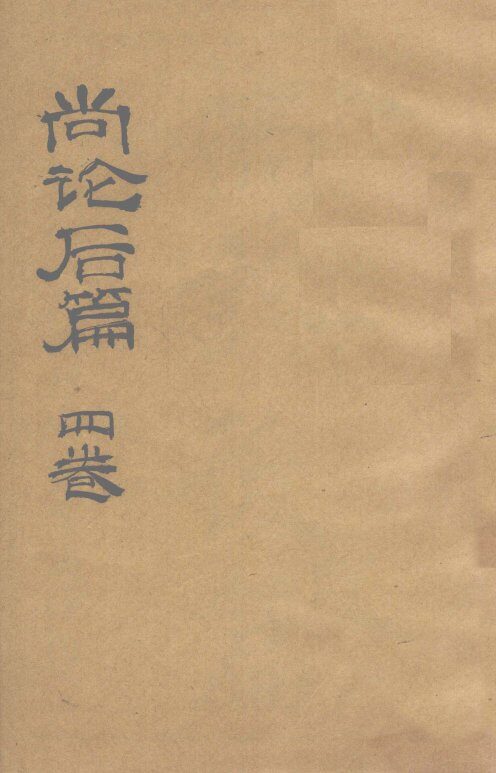 尚论后篇
四卷